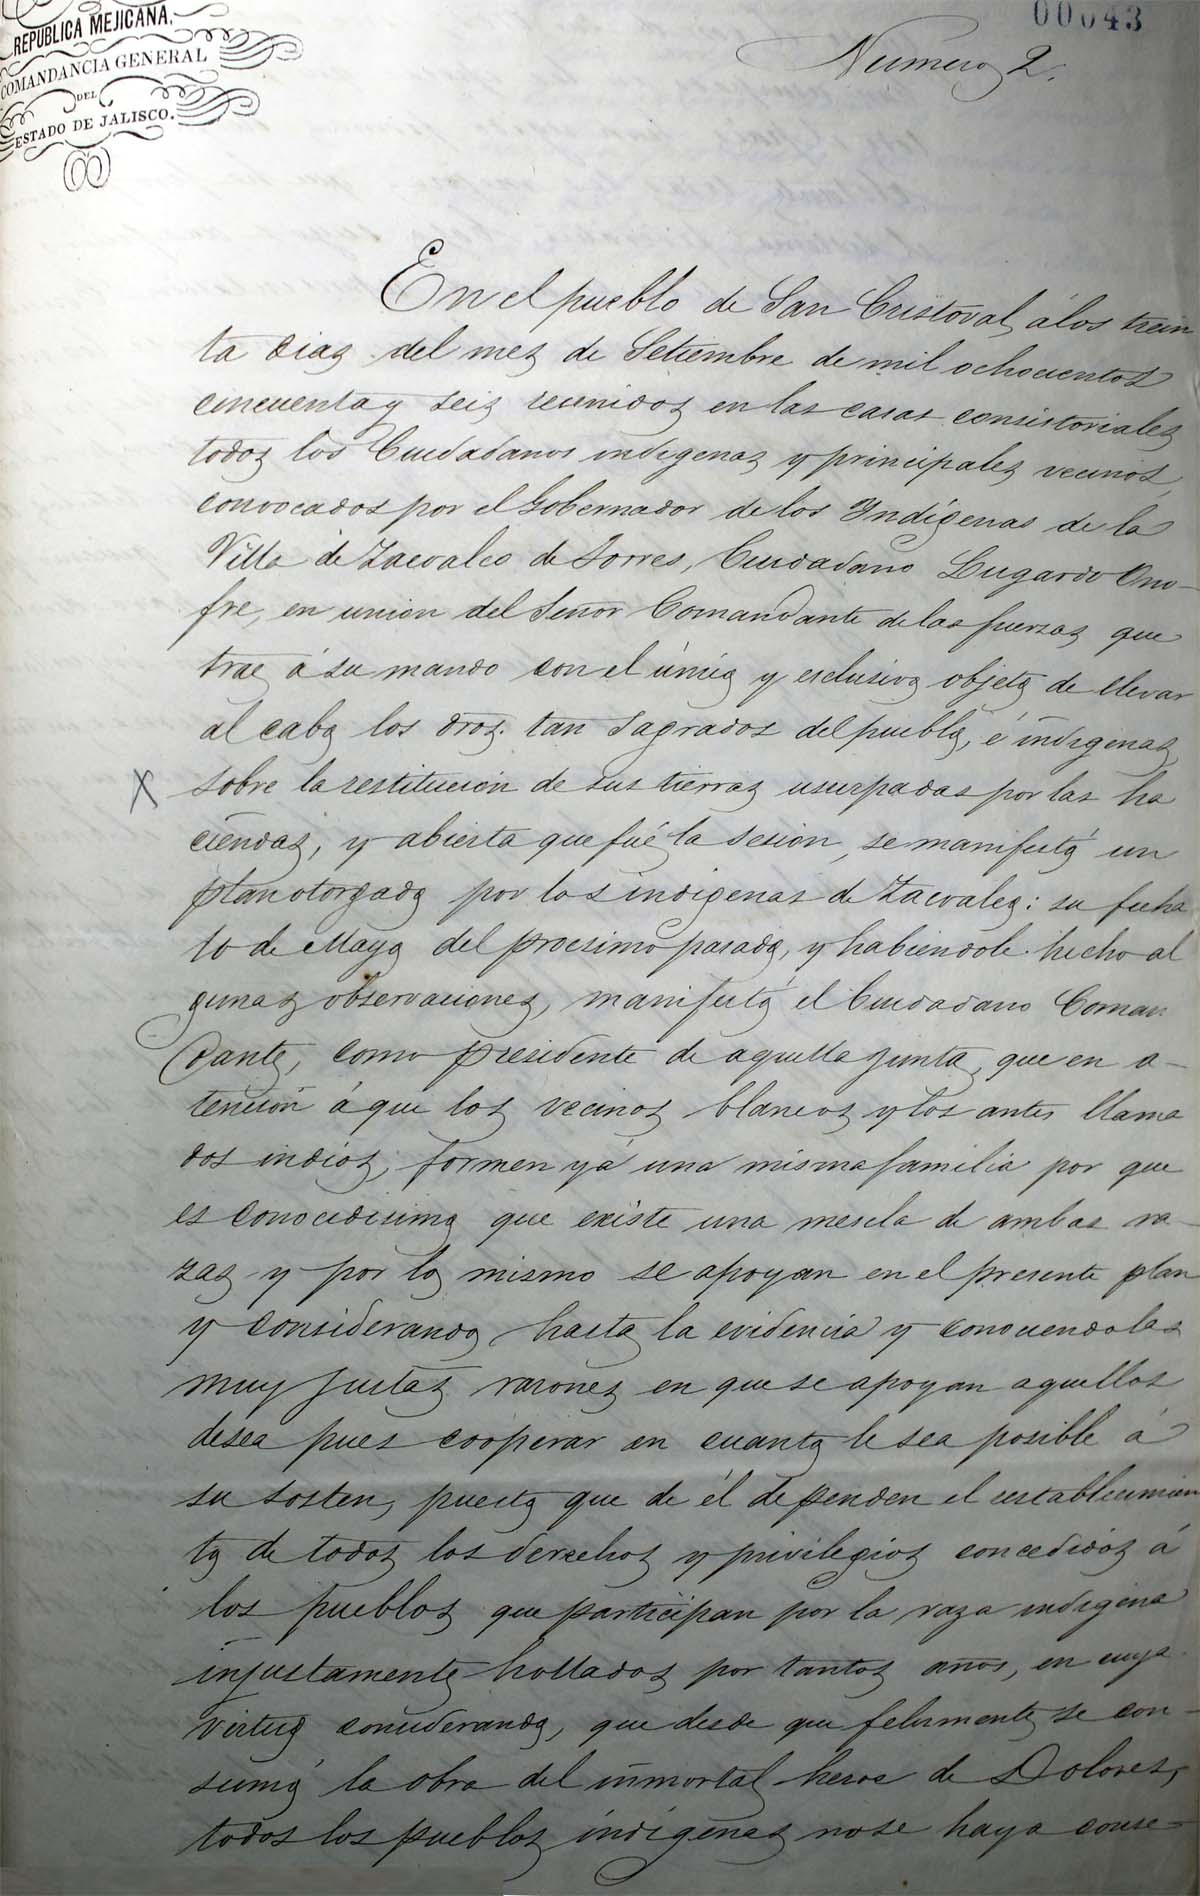 REPÚBLICA MEJICANA.
COMANDANCIA GENERAL
DEL
ESTADO DE JALISCO.
00043
Numero 2.
En el pueblo de San Cristoval, á los trein
ta dias del mez de Setiembre de mil ochocientos
cincuenta y seis reunidos en las casas consistoriales
todos los Ciudadanos indigenas y principales vecinos,
convocados por el Gobernador de los Yndígenas de la
Villa de Zacoalco de Torres, Ciudadano Lugardo Ono-
fre, en union del Señor Comandante de las fuerzas que
trae á su mando con el único y esclusivo objeto de llevar
al cabo los dros. tan sagrados del pueblo, é indigenas,
X sobre la restitucion de sus tierras usurpadas por las ha
ciendas, y abierta que fué la sesion, se manifestó un
plan otorgado por los indigenas de Zacoalco: su fecha
10 de Mayo del procsimo pasado, y habiendole hecho al
gunas observaciones, manifestó el Ciudadano Coman
dante, como presidente de aquella junta, que en a-
tencion á que los vecinos blancos y los antes llama
dos indios, formen yá una misma familia por que
es conocidisimo que existe una mescla de ambas ra-
zas y por lo mismo se apoyan en el presente plan
y considerando hasta la evidencia y conociendo las
muy justas razones en que se apoyan aquellos
desea pues cooperar en cuanto le sea posible á
su sosten, puesto que de él dependen el restablecimien
to de todos los derechos y privilegios concedidos á
los pueblos que participan por la raza indigena
injustamente hollados por tantos años, en cuya
virtud considerando, que desde que felizmente se con-
sumó la obra del inmortal heroe de Dolores,
todos los pueblos indígenas no se haya conse-